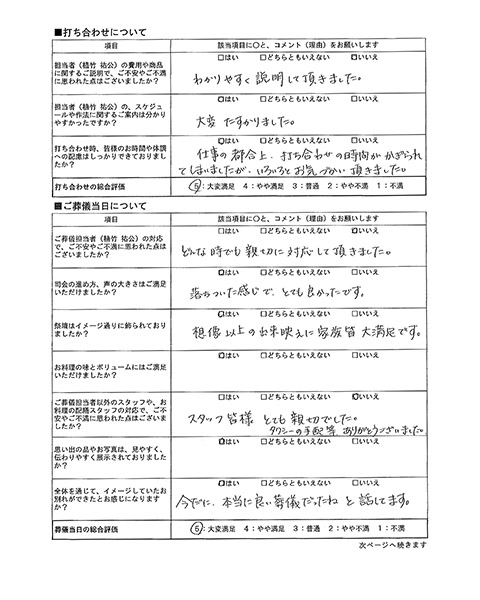 ■打ち合わせについて
項目 該当項目に○と、コメント（理由）をお願いします
担当者（植竹 祐公）の費用や商品
に関するご説明で、ご不安やご不満
に思われた点はございましたか？
□はい □どちらともいえない □いいえ
わかりやすく説明して頂きました。
担当者（植竹 祐公）の、スケジュ
ールや作法に関するご案内は分かり
やすかったですか？
□はい □どちらともいえない □いいえ
大変 たすかりました。
打ち合わせ時、皆様のお時間や体調
への配慮はしっかりできておりまし
たか？
□はい □どちらともいえない □いいえ
仕事の都合上、打ち合わせの時間がかぎられ
てしまいましたが、いろいろとお気づかい頂きました。
打ち合わせの総合評価 ⑤：大変満足 4：やや満足 3：普通 2：やや不満 1：不満
■ご葬儀当日について
項目 該当項目に○と、コメント（理由）をお願いします
ご葬儀担当者（植竹 祐公）の対応
で、ご不安やご不満に思われた点は
ございましたか？
□はい □どちらともいえない □いいえ
どんな時でも親切に対応して頂きました。
司会の進め方、声の大きさはご満足
いただけましたか？
□はい □どちらともいえない □いいえ
落ちついた感じで、とても良かったです。
祭壇はイメージ通りに飾られており
ましたか？
□はい □どちらともいえない □いいえ
想像以上の出来映えに家族皆大満足です。
お料理の味とボリュームにはご満足
いただけましたか？
□はい □どちらともいえない □いいえ
ご葬儀担当者以外のスタッフや、お
料理の配膳スタッフの対応で、ご不
安やご不満に思われた点はございま
したか？
□はい □どちらともいえない □いいえ
スタッフ皆様 とても親切でした。
タクシーの手配等、ありがとうございました。
思い出の品やお写真は、見やすく、
伝わりやすく展示されておりました
か？
□はい □どちらともいえない □いいえ
全体を通じて、イメージしていたお
別れができたとお感じになりますか？
□はい □どちらともいえない □いいえ
今だに、本当に良い葬儀だったねと話してます。
葬儀当日の総合評価 ⑤：大変満足 4：やや満足 3：普通 2：やや不満 1：不満
次ページへ続きます